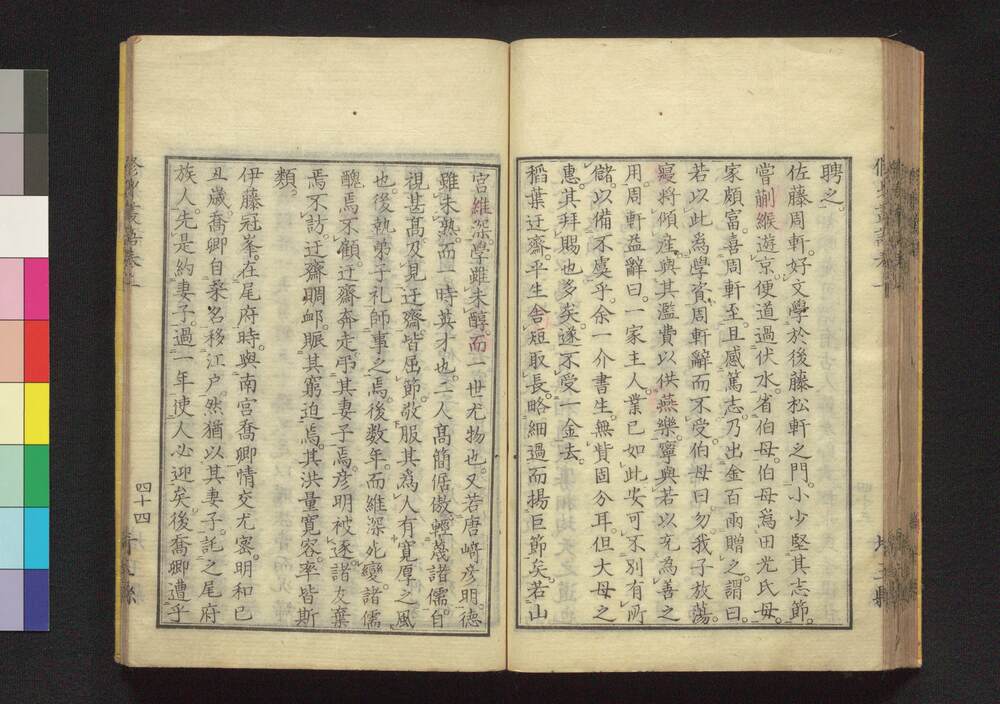 聘之。
佐藤周軒。好文學於後藤松軒之門。小少堅其志節。
嘗蒯緱遊京。便道過伏水。省伯母。伯母爲田光氏母。
家頗富。喜周軒至。且感篤志。乃出金百兩贈之。謂曰。
若以此為學資。周軒辭而不受。伯母曰。勿我子放蕩。
寝將傾産。與其濫費以供燕樂。寧與若以充為善之
用。周軒益辭曰。一家主人。業已如此。安可不別有所
儲。以備不虞乎。余一介書生。無貲固分耳。但大母之
惠。其拜賜也多矣。遂不受一金去。
稻葉迂齋。平生舎短取長。略細過而揚巨節矣。若山
宮維深。學雖未醇。而一世尤物也。又若唐﨑彦明。德
雖未熟。而一時英才也。二人髙簡倨傲。輕蔑諸儒。自
視甚髙。及見迂齋。皆屈節。敬服其為人有寛厚之風
也。後執弟子礼。師事之焉。後数年。而維深死變。諸儒
醜焉不顧。迂齋奔走。弔其妻子焉。彦明被逐。諸友葉
焉不訪。迂齋賙卹。賑其窮迫焉。其洪量寛容。率皆斯
類。
伊藤冠峯。在尾府時。與南宮喬卿情交尤宻。明和已
丑歳。喬卿自桒名移江户。然猶以其妻子。託之尾府
族人。先是約妻子。過一年使人必迎矣。後喬卿遭乎
四十四